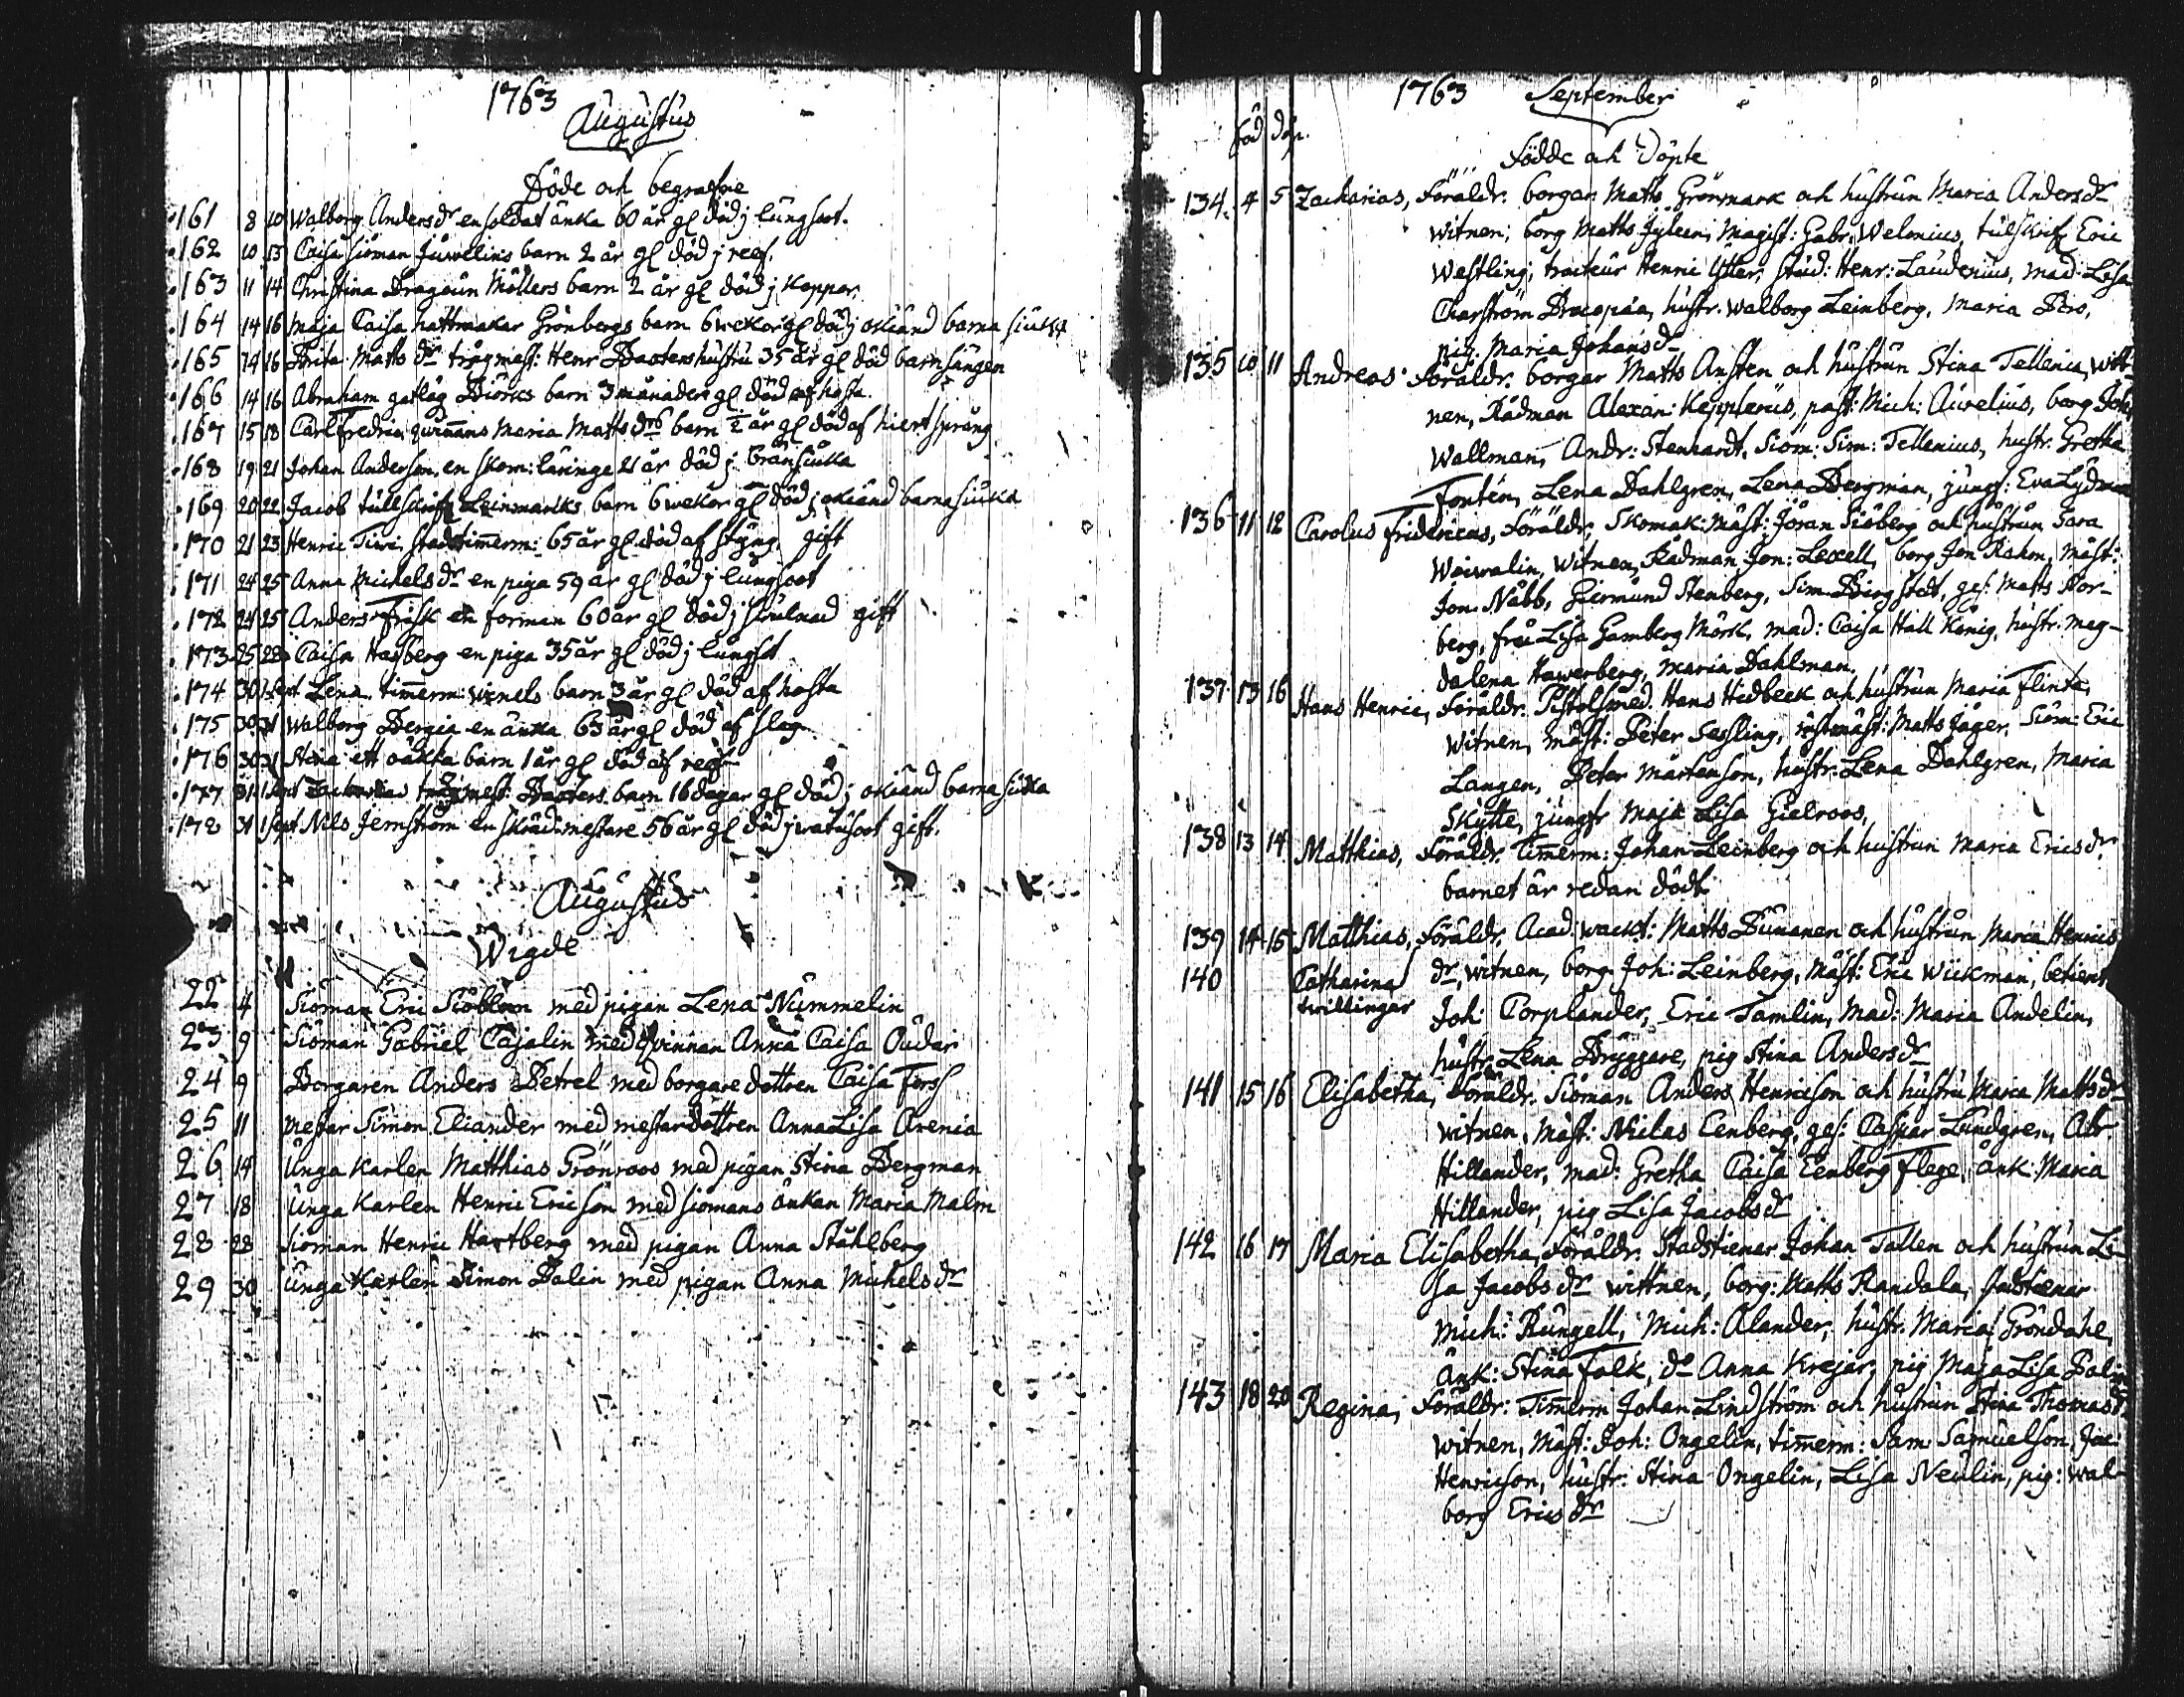 1763
Augustus
Döde och begrafne
161 8 10 Walborg Andersdr en soldat änka 60 år gl död j lungsoot.
162 10 13 Caisa siöman Juwelins barn 2 år gl död j
163 11 14 Christina Dragoun Möllers barn 2 år gl död j Koppor.
164 14 16 Maja Caisa hattmakar Grönbergs barn 6 wekor gl död j okiänd barna siuka
165 14 16 Brita Matts dr Henr hustru 35 år gl död barnsängen
166 14 16 Abraham Biörks barn 3 månader gl död af hosta.
167 15 18 Carl Fredric, qvinnans Maria Matts drs barn ½ år gl död af hiertsprång
168 19 21 Johan Anderson, en skom: läringe 21 år död j bränsiuka
169 20 22 Jacob tullskrif Leinmarks barn 6 wekor gl död j okiänd barnasiuka
170 21 23 Henric Tiwi, stadstimerm: 65 år gl död af styng gift
171 24 25 Anna Michels dr en piga 59 år gl död j lungsoot
172 24 25 Anders Frisk en forman 60 år gl död j gift
173 25 28 Caisa Hasberg en piga 35 år gl död j lungsot
174 30 1 sept Lena timerm: barn 3 år gl död af hosta
175 30 31 Walborg Bergia en änka 63 år gl död af slag
176 30 31 Stina ett oäkta barn 1 år gl död af
177 31 1 sept Zacharias barn 16 dagar gl död j okiänd barnasiuka
178 31 1 sept Nils Jernström en skräd:mestare 56 år gl död j watusoot gift.
Augustus
Wigde
22 4 Siöman Eric Siöblom med pigan Lena Nummelin
23 9 Siöman Gabriel Cajalin med qvinnan Anna Caisa Oudar
24 9 Borgaren Anders Petrel med borgare dottren Caisa Forss
25 11 Mestar Simon Eliander med mestardottren Anna Lisa Arenia
26 14 Unga Karlen Matthias Grönroos med pigan Stina Bergman
27 18 Unga Karlen Henric Ericson med siömans änkan Maria Malm
28 28 Siöman Henric Hartberg med pigan Anna Ståhlberg
29 30 Unga Karlen Simon Dalin med pigan Anna Michels dr
1763 September
föd döp.
Födde och Döpte
134 4 5 Zacharias, Föräldr. borgar Matts Grönmark och hustrun Maria Anders dr
witnen; borg Matts Magist: Gabr: Welonius, tulskrif Eric
Westling; tracteur Henric stud: Henr: Laudenius, mad: Lisa
Charström Bracopäa, hustr. Walborg Leinberg, Maria Bero,
pig. Maria Johans dr
135 10 11 Andreas. Föräldr. borgar Matts Ansten och hustrun Stina Tellenia, witt-
nen, Rådman Alexan: Kepplerus, past: Mich: Aurelius, borg Joh:
Wallman, Andr: Stenhardt, Siöm: Sim: Tellenius, hustr. Gretha
Fontén, Lena Dahlgren, Lena Bergman, jungf: Eva Lydman
136 11 12 Carolus Fridericus, Föräldr, Skomak: mäst: Jöran Siöberg och hustrun Sara
Waiwalin, witnen, Rådman Jon: Lexell, borg Jon Rahm, mäst:
Jon Nabb, Giermund Stenberg, Sim Bergstedt, ges: Matts Nor-
berg, fru Lisa Gamberg Mörk, mad: Caisa Hall König, hustr. Mag-
dalena Hawerberg, Maria Dahlman.
137 13 16 Hans Henric, Föräldr. Pistolsmed. Hans Hidbeck och hustrun Maria Flinta,
Witnen, mäst: Peter Sessling, Matts Jäger, Siöm: Eric
Langen, Peter Mårtenson, hustr. Lena Dahlgren, Maria
Skytte, jungfr Maja Lisa Gielroos,
138 13 14 Matthias, Föräldr. Timerm: Johan Leinberg och hustrun Maria Erics dr
barnet är redan dödt.
139 14 15 Matthias, Föräldr. Acad: wackt: Matts Bumanen och hustrun Maria Henrics
140 Catharina dr, witnen, borg Joh: Leinberg, mäst: Eric Wickman, betient
twillingar Joh: Corplander, Eric Tamlin, Mad: Maria Andelin,
hustr. Lena Bryggare, pig Stina Anders dr
141 15 16 Elisabetha, Föräldr. Siöman Anders Henricson och hustru Maria Matts dr
witnen, mäst: Niclas Eenberg, ges: Caspar Lundgren, Abr:
Hillander, mad: Gretha Caisa Eenberg Flege, änk: Maria
Hillander, pig Lisa Jacobs dr
142 16 17 Maria Elisabetha, Föräldr. Stadstienar Johan Tallen och hustrun Li-
sa Jacobs dr wittnen, borg: Matts Randala, stadstienar
Mich: Rungell, Mich: Alander, hustr. Maria Gröndahl,
änk: Stina Falk, do Anna Krejar, pig Maja Lisa Dalin
143 18 20 Regina, Föräldr: Timerm Johan Lindström och hustrun Stina Thomas dr
witnen, mäst: Joh: Ongelin, timerm: Sam: Samuelson, Jac
Henricson, hustr: Stina Ongelin, Lisa Neulin, pig: Wal-
borg Erics dr